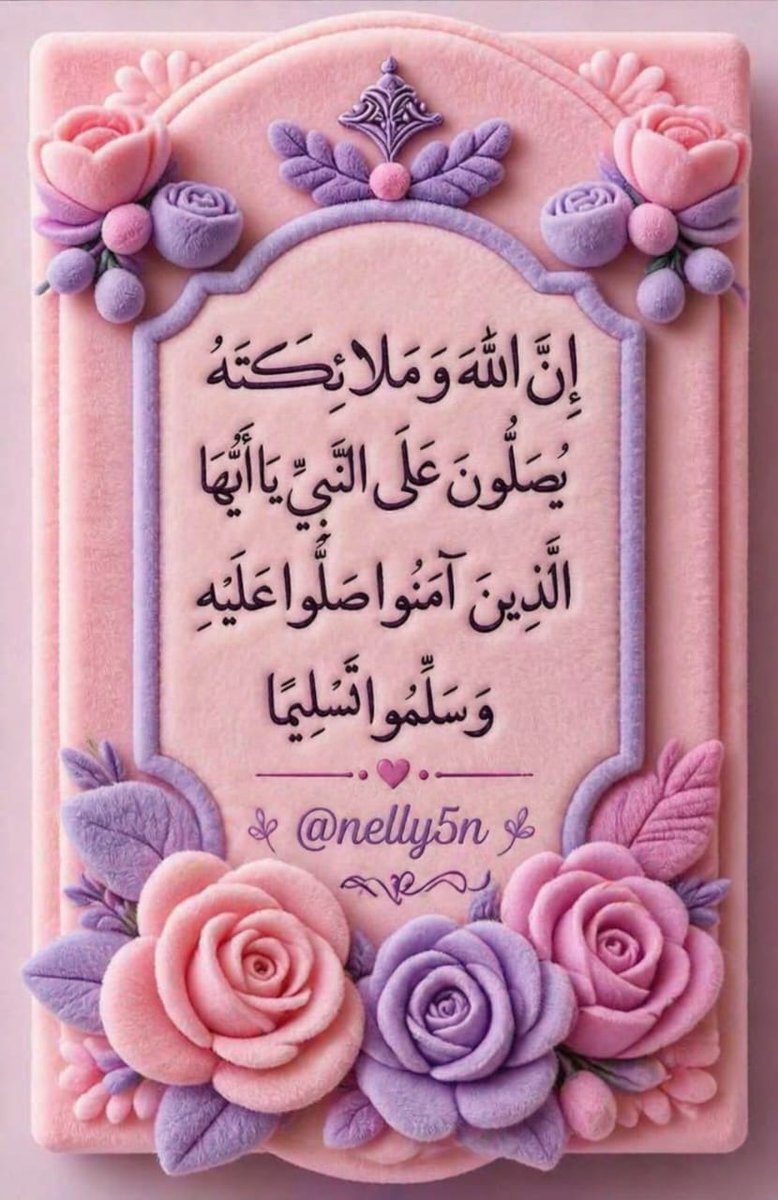 إِنَّ اللَّهَ وَمَلَائِكَتَهُ
يُصَلُّونَ عَلَى النَّبِيِّ يَا أَيُّهَا
الَّذِينَ آمَنُوا صَلُّوا عَلَيْهِ
وَسَلِّمُوا تَسْلِيمًا
@nelly5n